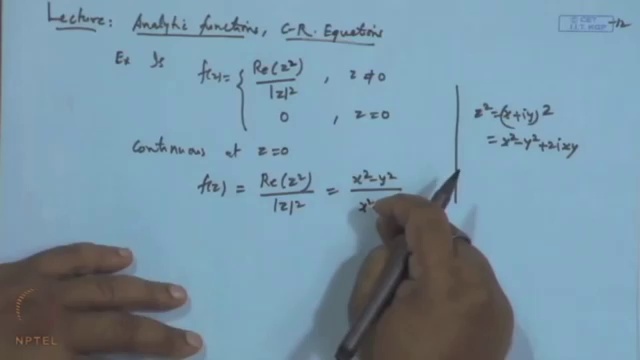 Lecture: Analytic functions, C-R. Equations
Ex Is f(z) = { Re(z²) / |z|² , z ≠ 0
0 , z = 0
Continuous at z = 0
f(z) = Re(z²) / |z|² = x² - y² / x²
z² = (x + iy)²
= x² - y² + 2ixy
-12
NPTEL